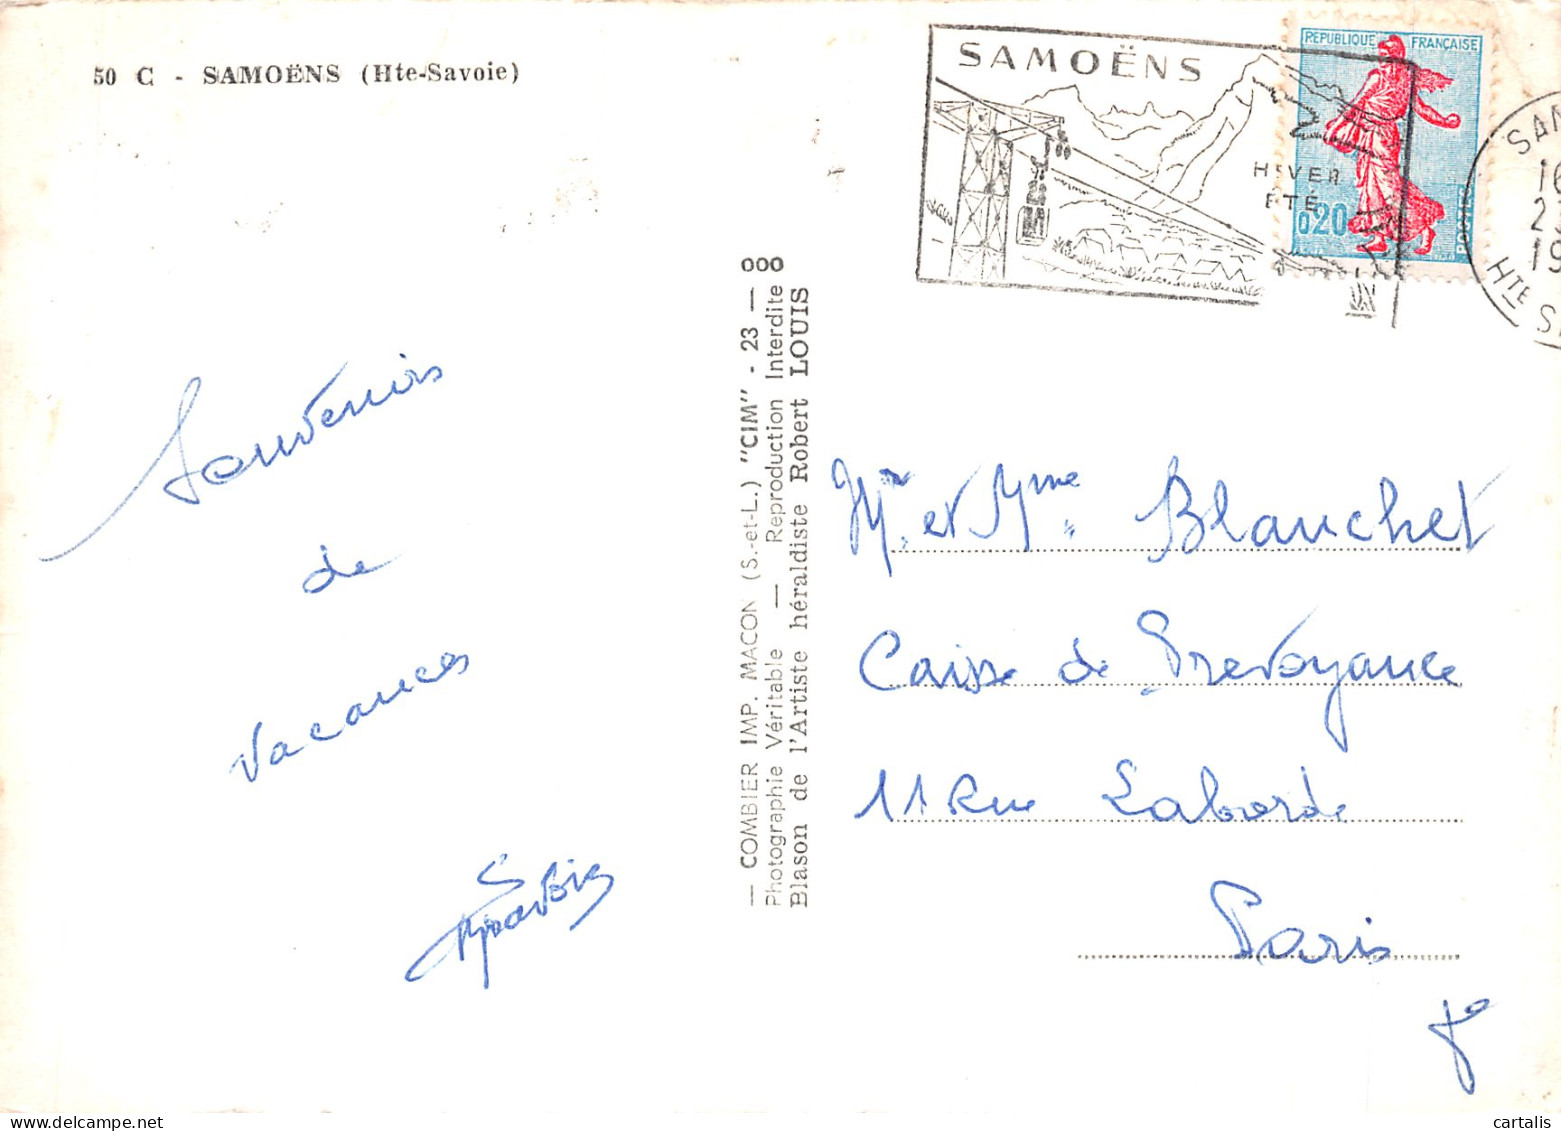 50 C - SAMOËNS (Hte-Savoie)
SAMOËNS
HIVER
ÉTÉ
REPUBLIQUE FRANÇAISE
0,20
POSTES
SAM
16
23
19
HTE S
Souvenirs
de
vacances
— COMBIER IMP. MACON (S.-et-L.) "CIM" - 23 — 000
Photographie Véritable — Reproduction Interdite
Blason de l'Artiste héraldiste Robert LOUIS
Mr. et Mme. Blanchet
Caisse de Prevoyance
11 Rue Laborde
Paris
cartalis
www.delcampe.net